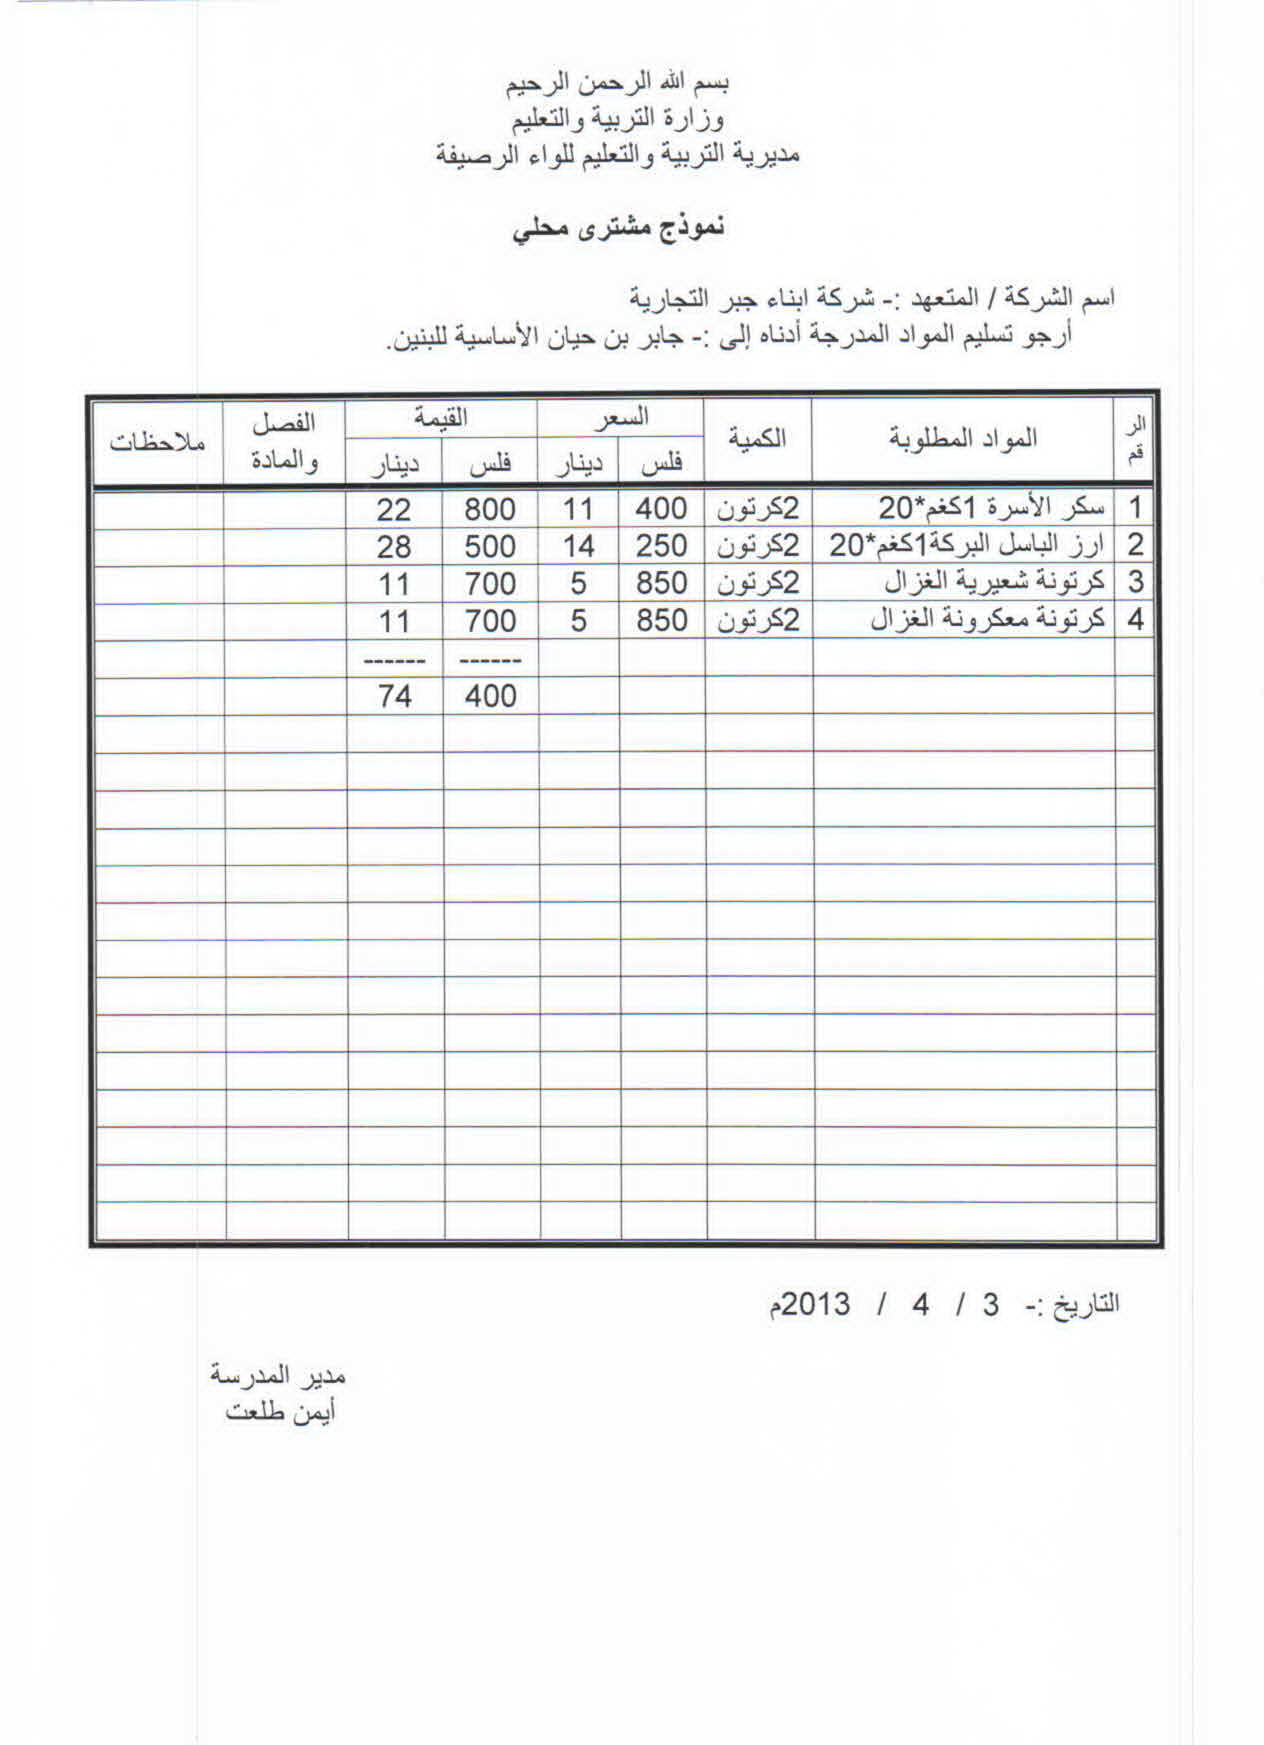 بسم الله الرحمن الرحيم
وزارة التربية والتعليم
مديرية التربية والتعليم للواء الرصيفة
نموذج مشترى محلي
اسم الشركة / المتعهد :- شركة ابناء جبر التجارية
أرجو تسليم المواد المدرجة أدناه إلى :- جابر بن حيان الأساسية للبنين.
الرقم المواد المطلوبة الكمية السعر القيمة الفصل والمادة ملاحظات
فلس دينار فلس دينار
1 سكر الأسرة 1كغم*20 2كرتون 400 11 800 22
2 ارز الباسل البركة1كغم*20 2كرتون 250 14 500 28
3 كرتونة شعيرية الغزال 2كرتون 850 5 700 11
4 كرتونة معكرونة الغزال 2كرتون 850 5 700 11
------ ------
400 74
التاريخ :- 3 / 4 / 2013م
مدير المدرسة
أيمن طلعت